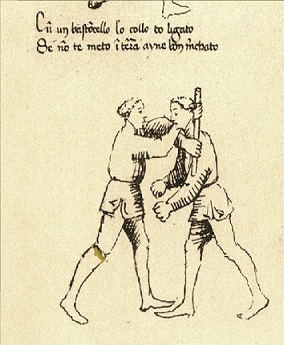 Cũ un bastõcello lo collo to ligato
Se nõ te meto ĩ tẽra ayne bon m̃chato